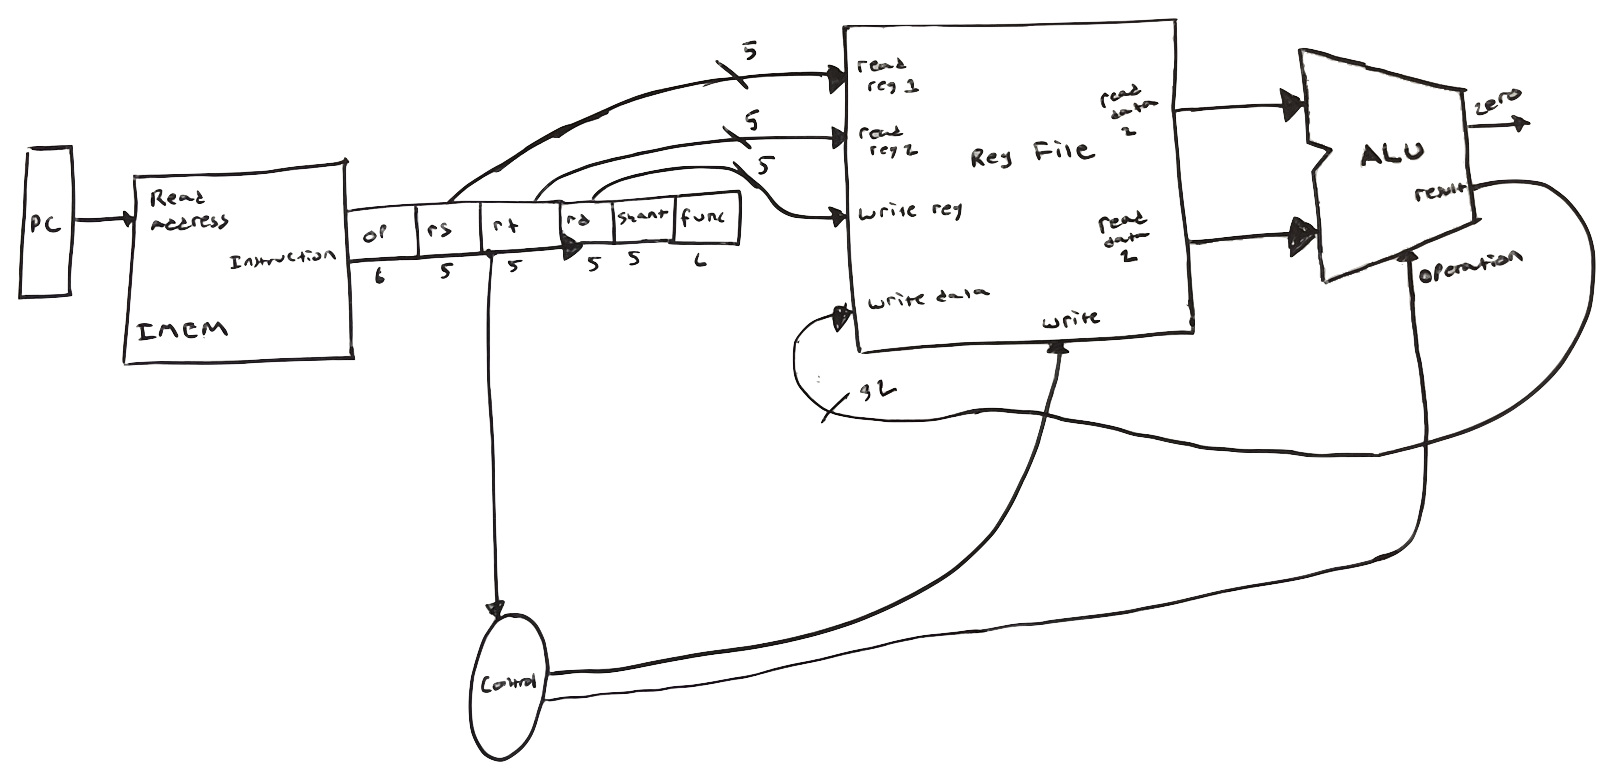 PC
Read
Address
Instruction
IMEM
op
rs
rt
rd
shamt
func
6
5
5
5
5
6
5
5
5
read
reg 1
read
reg 2
write reg
write data
Reg File
read
data
2
read
data
2
write
32
ALU
zero
result
operation
Control